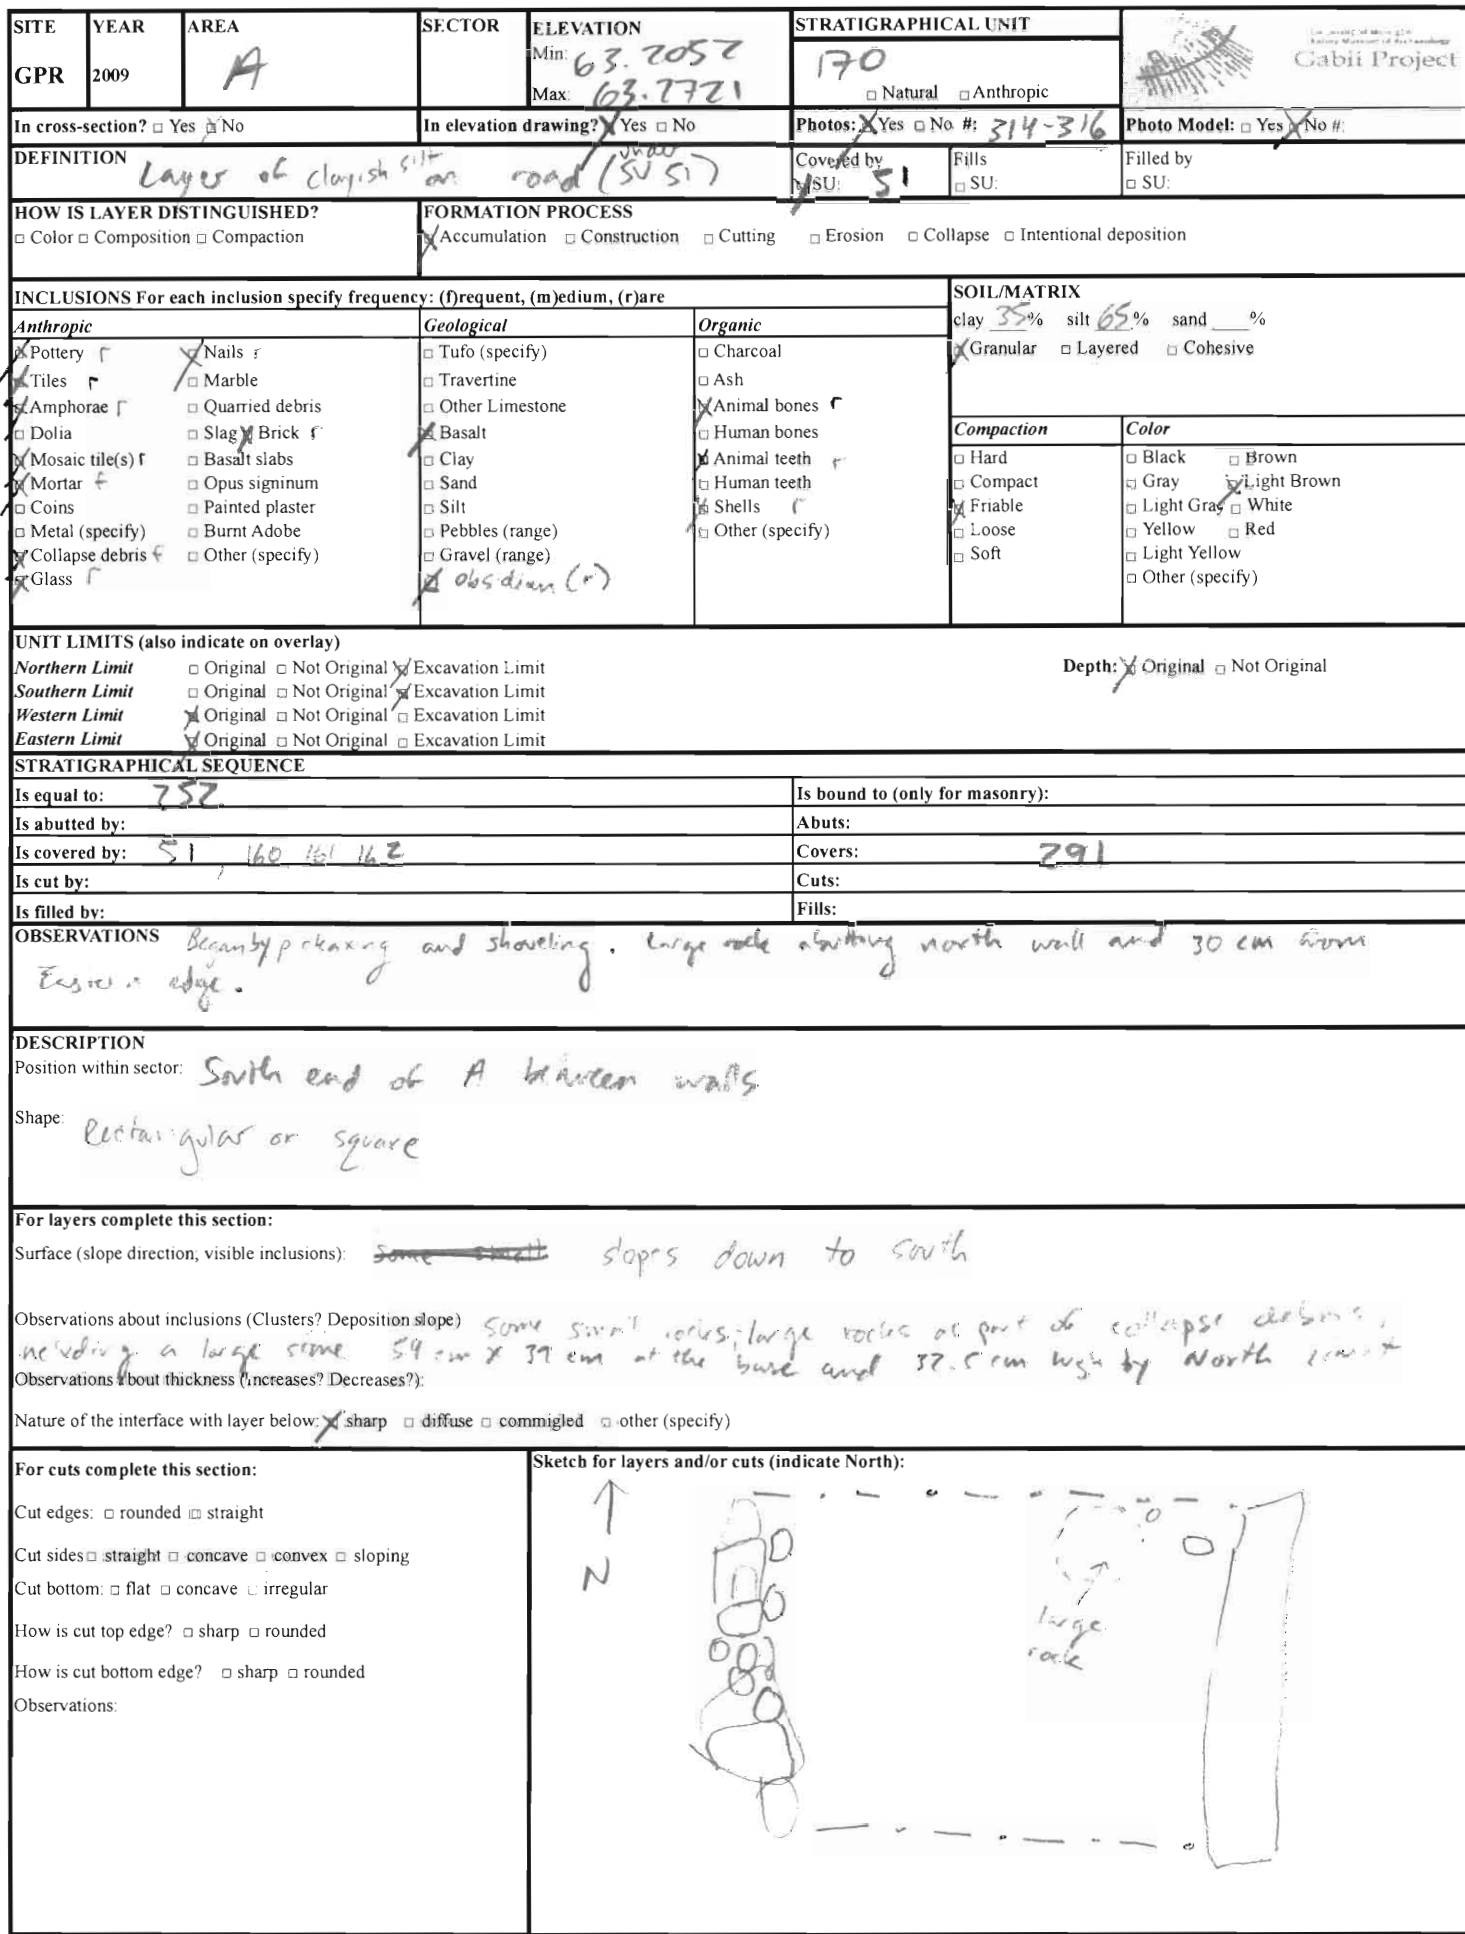 SITE YEAR AREA SECTOR ELEVATION STRATIGRAPHICAL UNIT
GPR 2009 A Min: 63.2052 170
Max: 63.2721 □ Natural □ Anthropic
Gabii Project
In cross-section? □ Yes ☒ No In elevation drawing? ☒ Yes □ No Photos: ☒ Yes □ No #: 314-316 Photo Model: □ Yes ☒ No #:
DEFINITION Layer of clayish silt on road (under SU 51) Covered by ☒ SU: 51 Fills □ SU: Filled by □ SU:
HOW IS LAYER DISTINGUISHED? FORMATION PROCESS
□ Color □ Composition □ Compaction ☒ Accumulation □ Construction □ Cutting □ Erosion □ Collapse □ Intentional deposition
INCLUSIONS For each inclusion specify frequency: (f)requent, (m)edium, (r)are SOIL/MATRIX
clay 35% silt 65% sand ___%
☒ Granular □ Layered □ Cohesive
Anthropic
☒ Pottery r ☒ Nails r
☒ Tiles r □ Marble
☒ Amphorae r □ Quarried debris
□ Dolia □ Slag ☒ Brick r
☒ Mosaic tile(s) r □ Basalt slabs
☒ Mortar f □ Opus signinum
□ Coins □ Painted plaster
□ Metal (specify) □ Burnt Adobe
☒ Collapse debris f □ Other (specify)
☒ Glass r
Geological
□ Tufo (specify)
□ Travertine
□ Other Limestone
☒ Basalt
□ Clay
□ Sand
□ Silt
□ Pebbles (range)
□ Gravel (range)
☒ obsidian (r)
Organic
□ Charcoal
□ Ash
☒ Animal bones r
□ Human bones
☒ Animal teeth r
□ Human teeth
☒ Shells r
□ Other (specify)
Compaction
□ Hard
□ Compact
☒ Friable
□ Loose
□ Soft
Color
□ Black □ Brown
□ Gray ☒ Light Brown
□ Light Gray □ White
□ Yellow □ Red
□ Light Yellow
□ Other (specify)
UNIT LIMITS (also indicate on overlay)
Northern Limit □ Original □ Not Original ☒ Excavation Limit Depth: ☒ Original □ Not Original
Southern Limit □ Original □ Not Original ☒ Excavation Limit
Western Limit ☒ Original □ Not Original □ Excavation Limit
Eastern Limit ☒ Original □ Not Original □ Excavation Limit
STRATIGRAPHICAL SEQUENCE
Is equal to: 252 Is bound to (only for masonry):
Is abutted by: Abuts:
Is covered by: 51, 160 161 162 Covers: 291
Is cut by: Cuts:
Is filled by: Fills:
OBSERVATIONS Began by pickaxing and shoveling. Large rock abutting north wall and 30 cm from
Eastern edge.
DESCRIPTION
Position within sector: South end of A between walls
Shape: Rectangular or square
For layers complete this section:
Surface (slope direction; visible inclusions): some small slopes down to south
Observations about inclusions (Clusters? Deposition slope) some small rocks, large rocks as part of collapse debris,
including a large stone 59 cm x 39 cm at the base and 32.5 cm high by North limit
Observations about thickness (Increases? Decreases?):
Nature of the interface with layer below: ☒ sharp □ diffuse □ commigled □ other (specify)
For cuts complete this section:
Cut edges: □ rounded □ straight
Cut sides □ straight □ concave □ convex □ sloping
Cut bottom: □ flat □ concave □ irregular
How is cut top edge? □ sharp □ rounded
How is cut bottom edge? □ sharp □ rounded
Observations:
Sketch for layers and/or cuts (indicate North):
N
large
rock